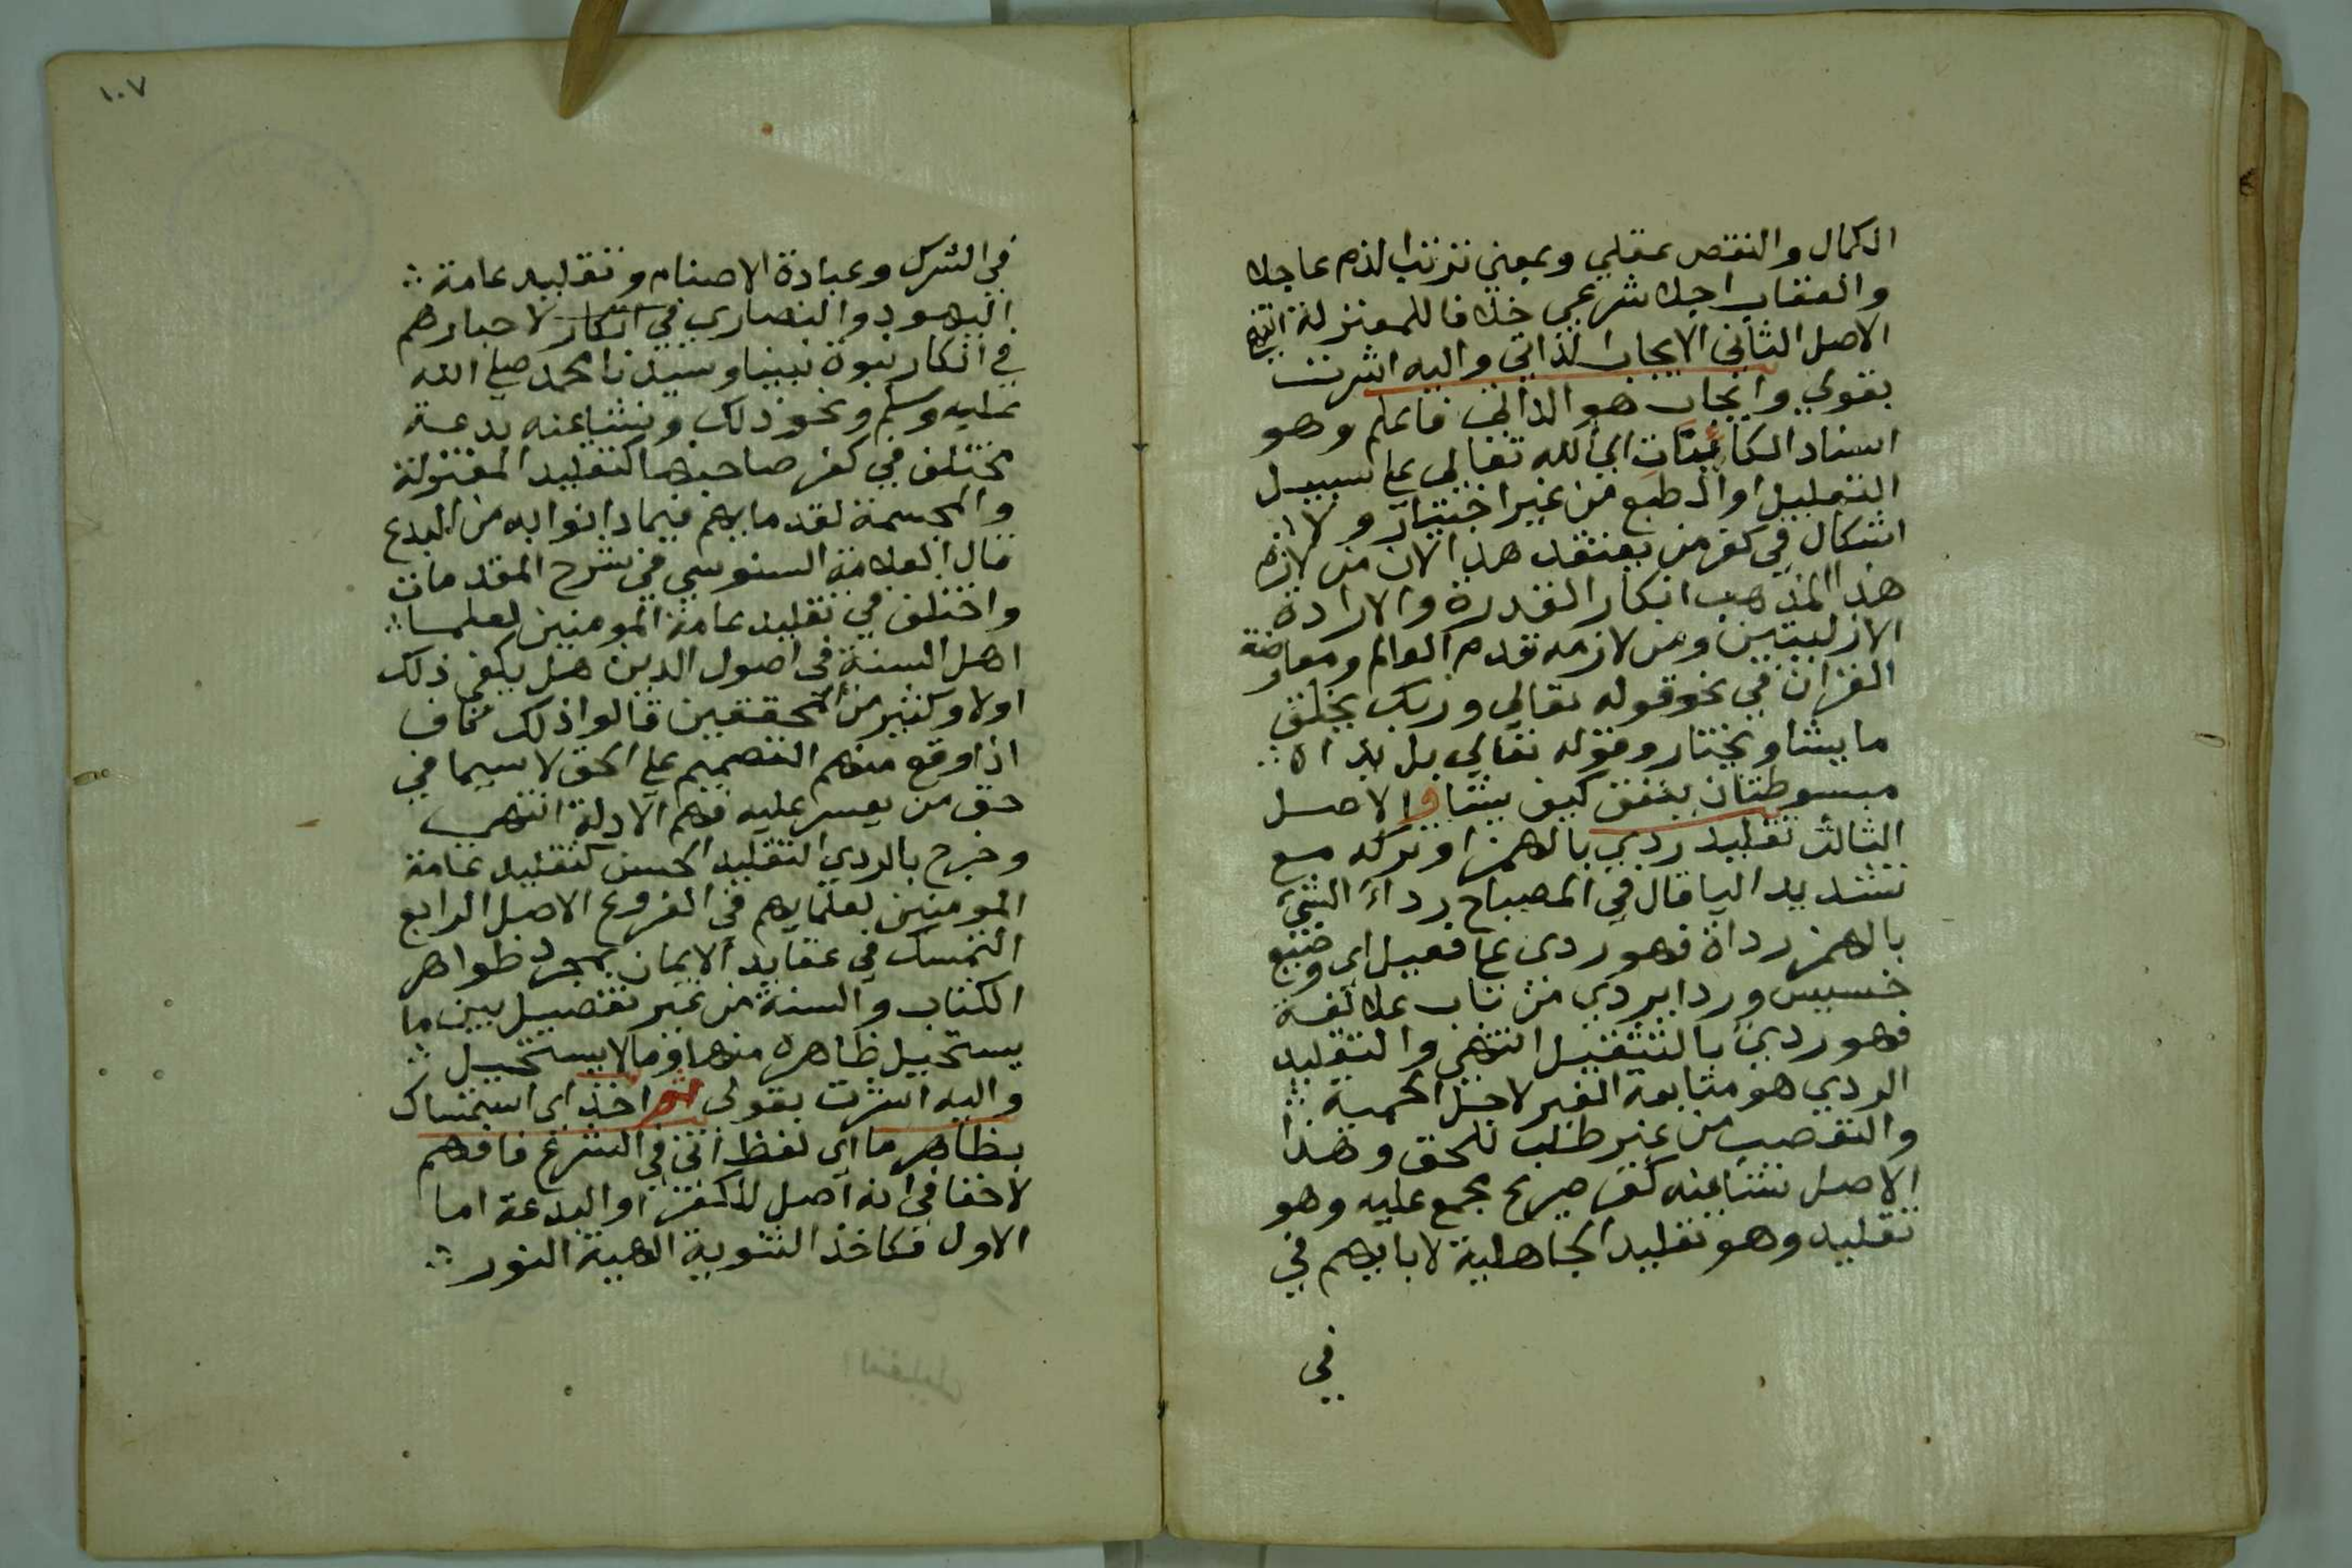 الكمال والنقص عقلي وبمعني ترتب الذم عاجلا
والعقاب اجلا شرعي خلافا للمعتزلة انتهي
الاصل الثاني الايجاب الذاتي واليه اشرت
بقولي وايجاب هو الذاتي فاعلم وهو
اسناد الكائنات الي الله تعالي علي سبيل
التعليل او الطبع من غير اختيار ولا
اشكال في كفر من يعتقد هذا لان من لازم
هذا المذهب انكار القدرة والارادة
الازليتين ومن لازمه قدم العالم ومعارضة
القران في نحو قوله تعالي وربك يخلق
ما يشا ويختار وقوله تعالي بل يداه
مبسوطتان ينفق كيف يشا والاصل
الثالث تقليد ردي بالهمز او تركه مع
تشديد اليا قال في المصباح رداء الشيء
بالهمز رداة فهو ردي علي فعيل اي وضيع
خسيس وردا يردي من باب علا لغة
فهو ردي بالتثقيل انتهي والتقليد
الردي هو متابعة الغير لاجل الحمية
والتعصب من غير طلب للحق وهذا
الاصل نشا عنه كفر صريح مجمع عليه وهو
تقليد وهو تقليد الجاهلية لابايهم في
في
١٠٧
في الشرك وعبادة الاصنام وتقليد عامة
اليهود والنصاري في انكار لاحبارهم
في انكار نبوة نبينا وسيدنا محمد صلي الله
عليه وسلم ونحو ذلك ونشا عنه بدعة
مختلف في كفر صاحبها كتقليد المعتزلة
والمجسمة لقدمايهم فيما دانوا به من البدع
قال العلامة السنوسي في شرح المقدمات
واختلف في تقليد عامة المومنين لعلما
اهل السنة في اصول الدين هل يكفي ذلك
اولا وكثير من المحققين قالوا ذلك كاف
اذا وقع منهم التصميم علي الحق لا سيما في
حق من يعسر عليه فهم الادلة انتهي
وخرج بالردي التقليد الحسن كتقليد عامة
المومنين لعلمايهم في الفروع الاصل الرابع
التمسك في عقايد الايمان بمجرد ظواهر
الكتاب والسنة من غير تفصيل بين ما
يستحيل ظاهره منها وما لا يستحيل
واليه اشرت بقولي ثم اخذ اي استمساك
بظاهر ما اي لفظ اتي في الشرع فافهم
لا خفا في انه اصل للكفر او البدعة اما
الاول فكاخذ الثنوية الهية النور